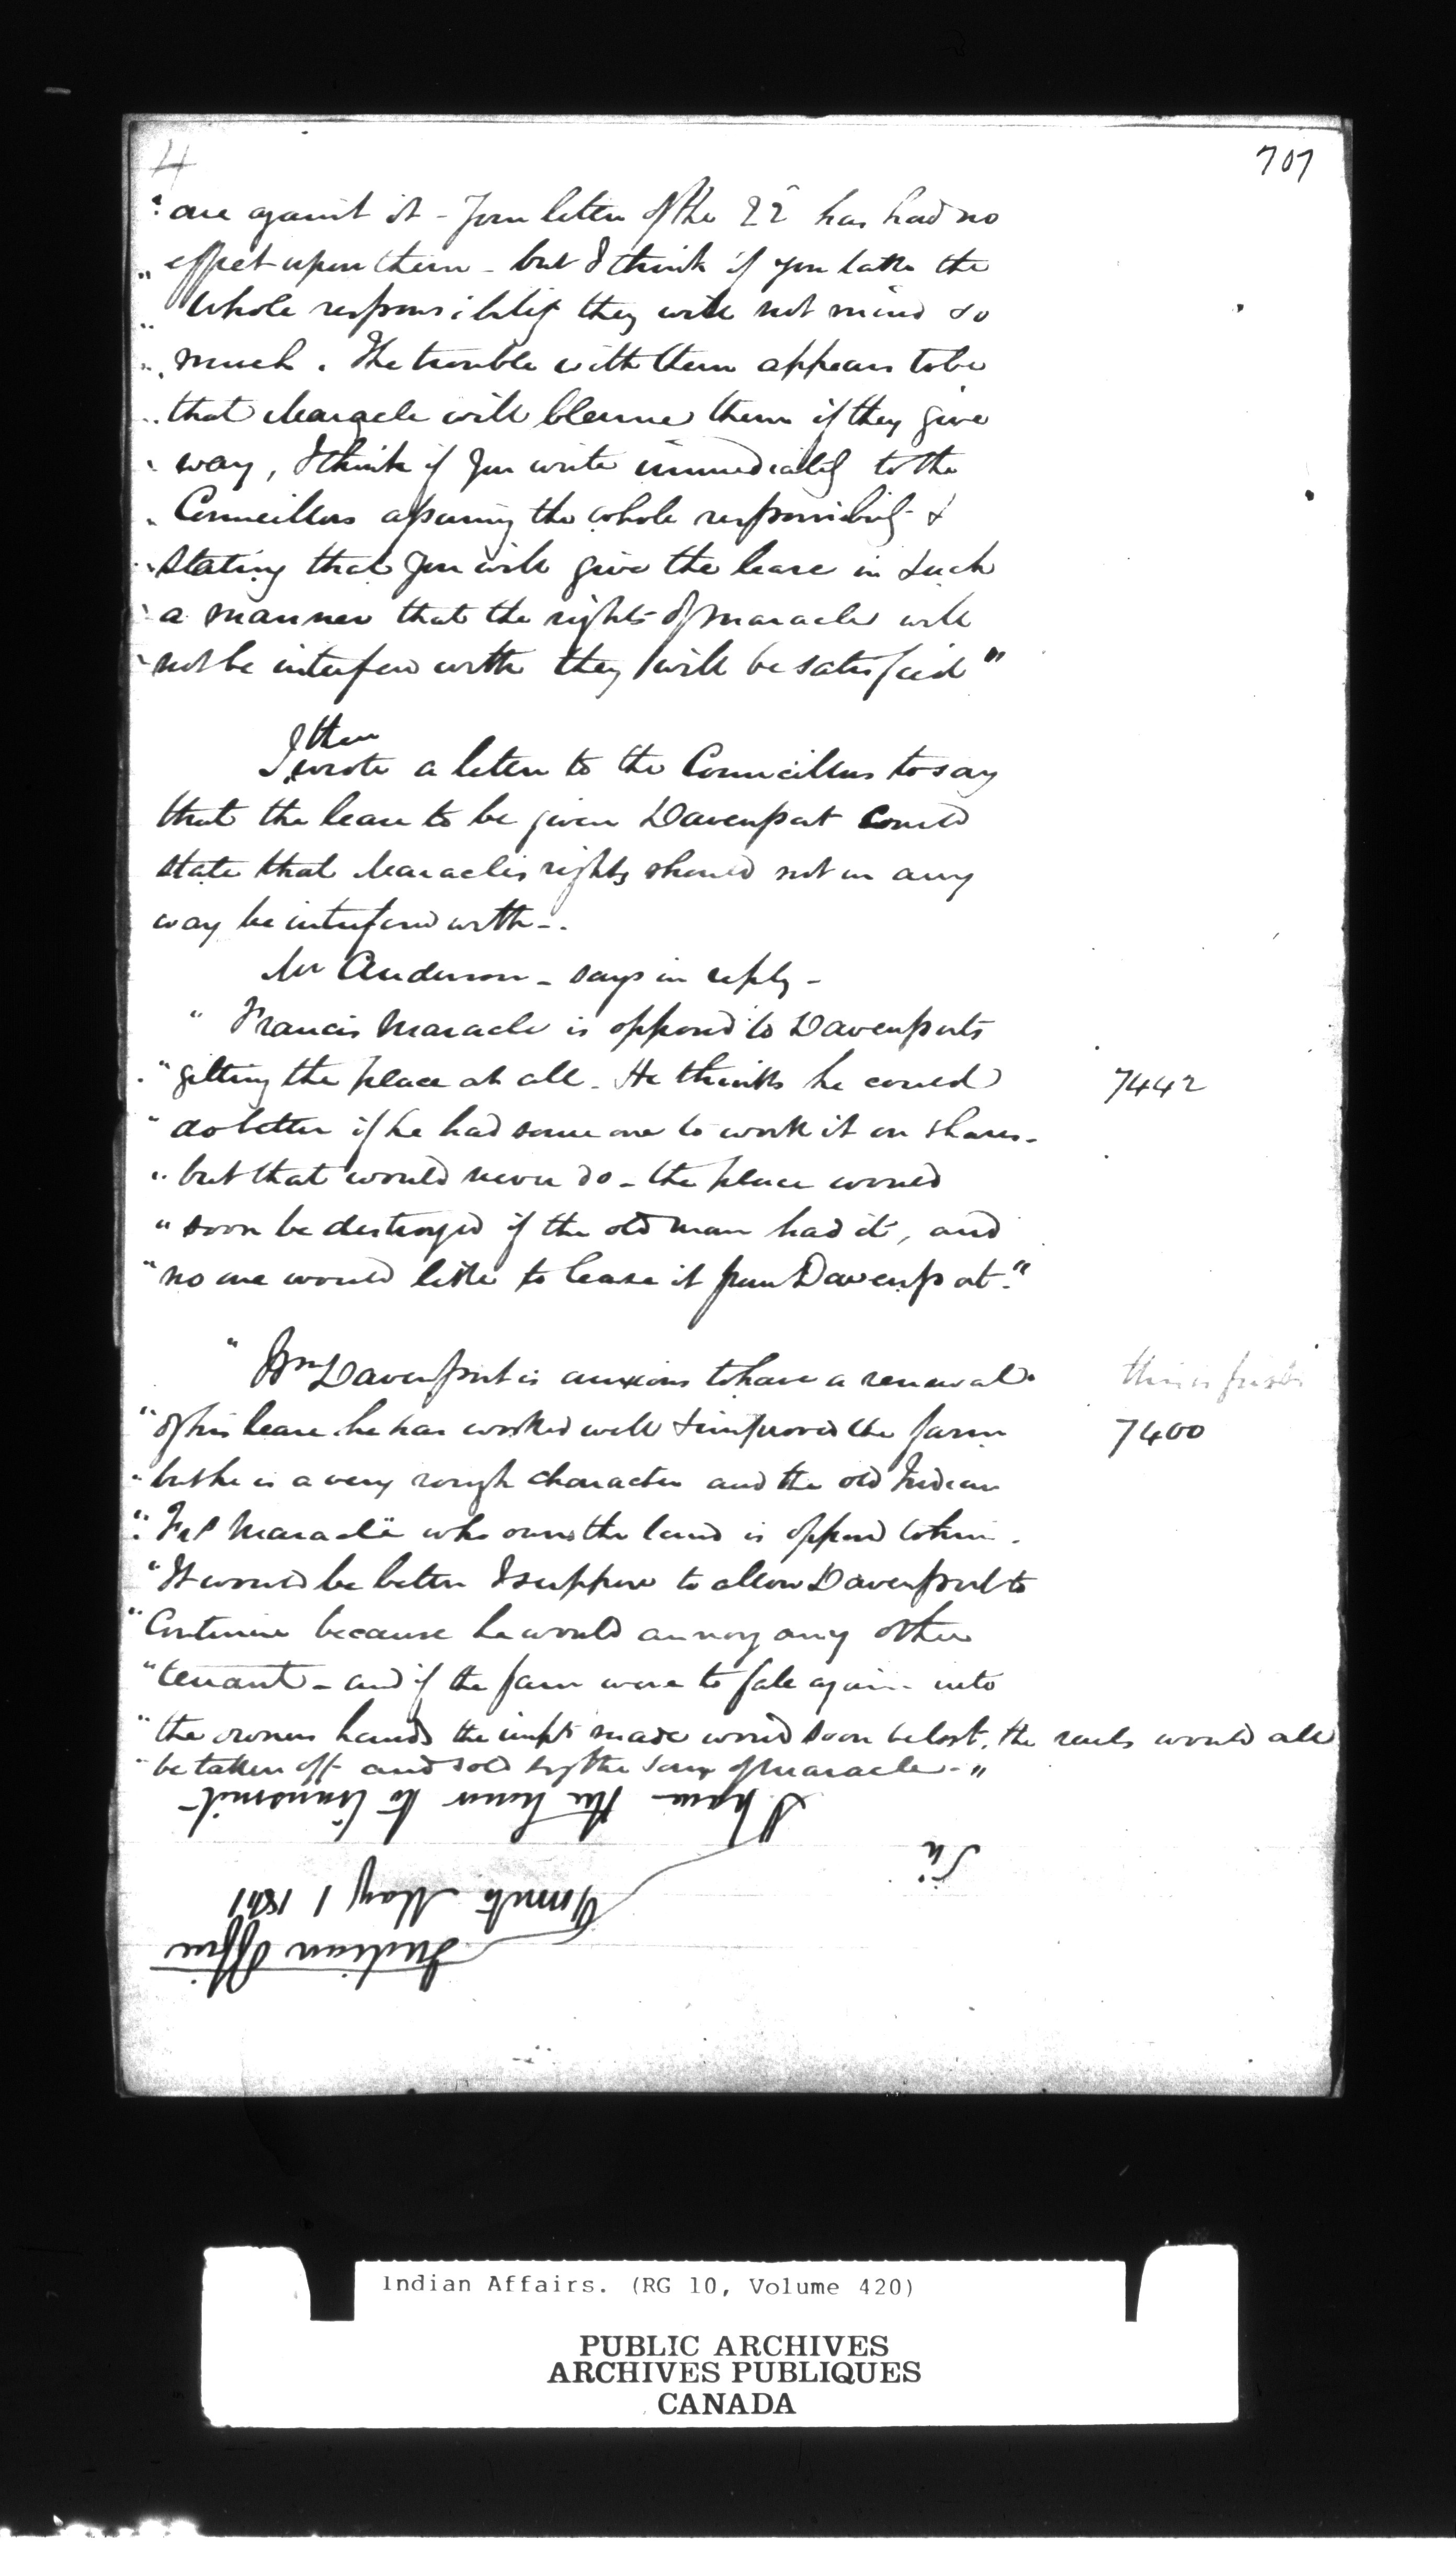 4
707
"are against it - Your letter of the 22d has had no
" effect upon them - but I think if you take the
" whole responsibility they will not mind so
" much. The trouble with them appears to be
" that Maracle will blame them if they give
" way, I think if you write immediately to the
" Councillors assuming the whole responsibily &
" stating that you will give the lease in such
" a manner that the rights of Maracle will
" not be interfered with they will be satisfied"
then
I wrote a letter to the Councillors to say
that the lease to be given Davenport could
state that Maracles rights should not in any
way be interfered with -.
Mr Anderson - says in reply -
" Francis Maracle is opposed to Davenports
" getting the place at all - He thinks he could
7442
" do better if he had some one to work it on shares -
" but that would never do - the place would
" soon be destroyed if the old man had it, and
" no one would like to lease it from Davenport."
" Wm Davenport is anxious to have a renewal
this is first
" of his lease he has worked well & improved the farm
7400
" but he is a very rough character and the old Indian
" Fs Maracle who owns the land is opposed to him.
" It would be better I suppose to allow Davenport to
" Continue because he would annoy any other
" tenant - and if the farm were to fall again into
" the owners hands the impts made would soon be lost. the rails would all
" be taken off and sold by the sons of Maracle - "
I have the honor to transmit
Sir
Toronto May 1 1861
Indian Office
Indian Affairs. (RG 10, Volume 420)
PUBLIC ARCHIVES
ARCHIVES PUBLIQUES
CANADA